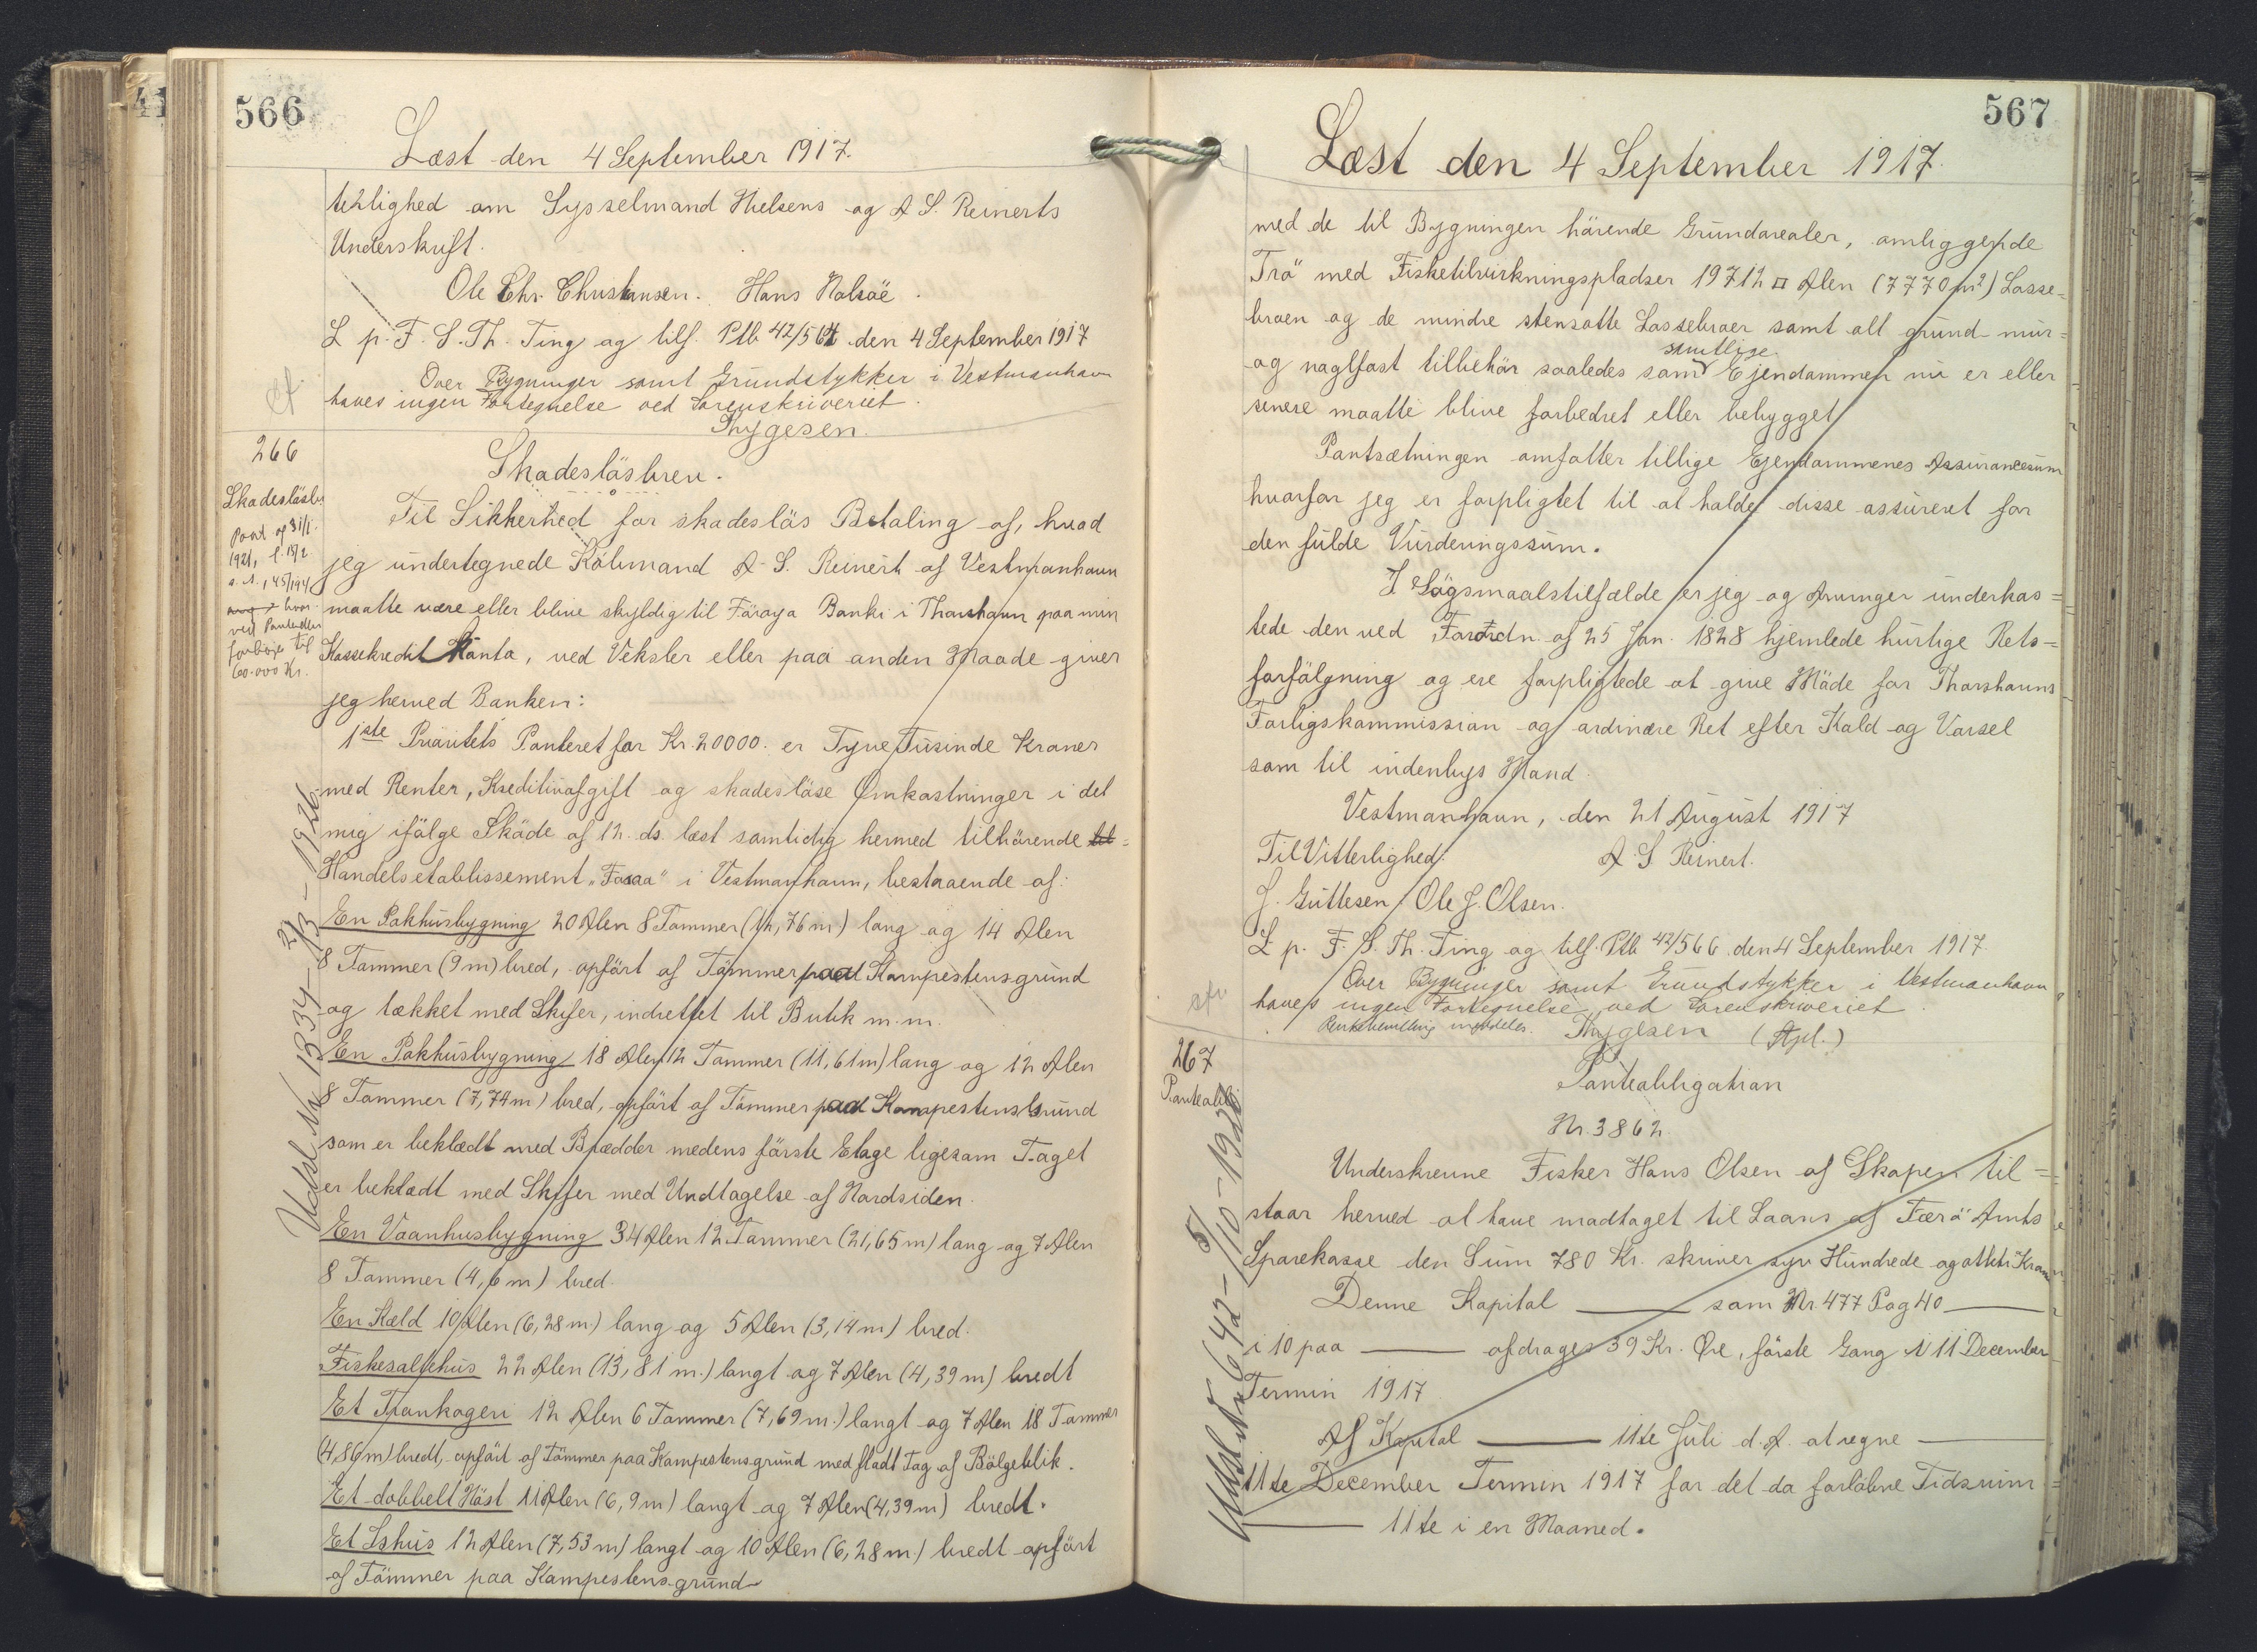 566
Læst den 4 September 1917.
terlighed om Sysselmand Nielsens og A S. Reinerts
Underskrift.
Ole Chr. Christiansen. Hans Halsöe.
L p. F. S. Th. Ting og tilf. Ptb 42/564 den 4 September 1917
Over Bygninger samt Grundstykker i Vestmanhavn
haves ingen Fortegnelse ved Sorenskriveriet.
Thygesen.
266
Skadesläsbr.
Paat af 31/1.
1921, l. 15/2
s. A.,
hvor
ved Panteretten
forhöjes til
60.000 Kr.
Skadesläsbrev.
Til Sikkerhed for skadesläs Betaling af, hvad
jeg undertegnede Köbmand A. S. Reinert af Vestmanhavn
maatte være eller blive skyldig til Färöya Banki i Thorshavn paa min
Kassekredit Konto, ved Veksler eller paa anden Maade giver
jeg herved Banken:
1ste Prioritets Panteret for Kr. 20000. er Tyve Tusinde Kroner
med Renter, Kreditivafgift og skadesläse Omkostninger i det
mig ifälge Skäde af 12. ds. læst samtidig hermed tilhärende til=
Handelsetablissement „Fasaa" i Vestmanhavn, bestaaende af:
En Pakhusbygning 20 Alen 8 Tommer (12,76 m) lang og 14 Alen
8 Tommer (9 m) bred, opfört af Tömmer paa Kampestensgrund
og tækket med Skifer, indrettet til Butik m. m.
En Pakhusbygning 18 Alen 12 Tommer (11,61 m) lang og 12 Alen
8 Tommer (7,74 m) bred, opfört af Tömmer paa KampestensGrund
som er beklædt med Brædder medens förste Etage ligesom Taget
er beklædt med Skifer med Undtagelse af Nordsiden.
En Vaanhusbygning 34 Alen 12 Tommer (21,65 m) lang og 7 Alen
8 Tommer (4,6 m) bred.
En Kæld 10 Alen (6,28 m.) lang og 5 Alen (3,14 m) bred.
Fiskesaltehus 22 Alen (13,81 m.) langt og 7 Alen (4,39 m) bredt
Et Trankogeri 12 Alen 6 Tommer (7,69 m.) langt og 7 Alen 18 Tommer
(4,86 m) bredt, opfört af Tömmer paa Kampestensgrund med fladt Tag af Bölgeblik.
Et dobbelt Näst 11 Alen (6,9 m) langt og 7 Alen (4,39 m) bredt.
Et Ishus 12 Alen (7,53 m) langt og 10 Alen (6,28 m) bredt opfört
af Tömmer paa Kampestensgrund
Udsl. Nr. 1334 - 27/3 - 1926.
567
Læst den 4 September 1917.
med de til Bygningen härende Grundarealer, omliggende
Trö med Fisketilvirkningspladser 19712 □ Alen (7770 m²) Losse=
broen og de mindre stensatte Lossebroer samt alt grund- mur=
og naglfast tilbehör saaledes som samtlige Ejendommen nu er eller
senere maatte blive forbedret eller bebygget
Pantsætningen omfatter tillige Ejendommenes Assurancesum
hvorfor jeg er forpligtet til at holde disse assureret for
den fulde Vurderingssum.
I Sögsmaalstilfælde er jeg og Arvinger underkas=
tede den ved Frdn. af 25 Jan. 1828 hjemlede hurtige Rets=
forfälgning og ere forpligtede at give Mäde for Thorshavns
Forligskommission og ordinære Ret efter Kald og Varsel
som til indenbys Mand.
Vestmanhavn, den 21 August 1917
Til Vitterlighed: A. S Reinert.
J. Guttesen Ole J. Olsen.
L p. F. S. Th. Ting og tilf. Ptb 42/566 den 4 September 1917.
Over Bygninger samt Grundstykker i Vestmanhavn
haves ingen Fortegnelse ved Sorenskriveriet.
Thygesen (Gpl.)
267
Panteobli
Panteobligation
Nr. 3862
Underskrevne Fisker Hans Olsen af Skapen til=
staar herved at have modtaget til Laans af Færö Amts
Sparekasse den Sum 780 Kr. skriver syv Hundrede og otteti Kroner
Denne Kapital ——— som Nr. 477 Pag 40 ———
i 10 paa ——— afdrages 39 Kr. Øre, förste Gang i 11 December
Termin 1917
Af Kapital ——— 11te Juli d. A. at regne ———
11te December Termin 1917 for det da forläbne Tidsrum=
——— 11te i en Maaned.
Udsl. Nr. 642 - 5/10 - 192